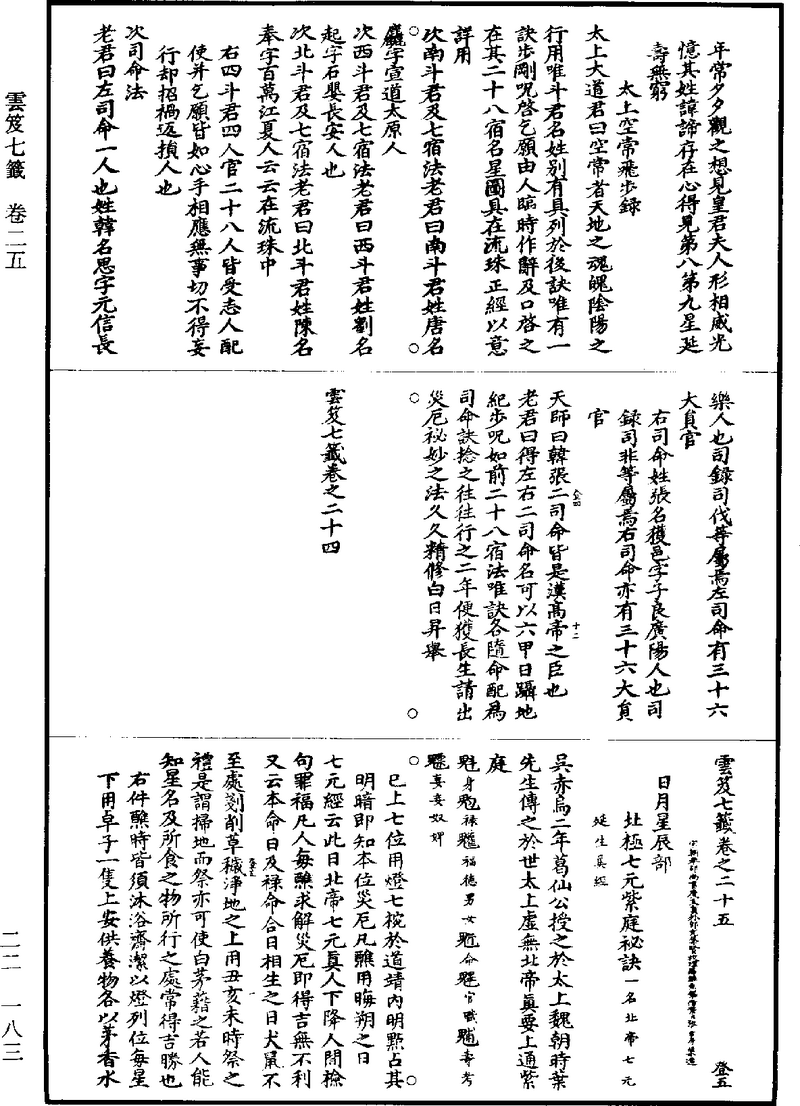 雲笈七籤 卷二五
二二 一八三
年常夕夕觀之想見皇君夫人形相威光
憶其姓諱諦存在心得見第八第九星延
壽無窮
太上空常飛步錄
太上大道君曰空常者天地之魂魄陰陽之
行用唯斗君名姓別有具列於後訣唯有一
訣步剛呪啓乞願由人臨時作辭及口啓之
在其二十八宿名星圖具在流珠正經以意
詳用
次南斗君及七宿法老君曰南斗君姓唐名
字宣道太原人
次西斗君及七宿法老君曰西斗君姓劉名
起字石嬰長安人也
次北斗君及七宿法老君曰北斗君姓陳名
奉字百萬江夏人云云在流珠中
右四斗君四人官二十八人皆受志人配
使并乞願皆如心手相應無事切不得妄
行却招禍返損人也
次司命法
老君曰左司命一人也姓韓名思字元信長
樂人也司錄司伐等屬焉左司命有三十六
大員官
右司命姓張名獲邑字子良廣陽人也司
錄司非等屬焉右司命亦有三十六大員
官
天師曰韓張二司命皆是漢高帝之臣也
老君曰得左右二司命名可以六甲日躡地
紀步呪如前二十八宿法唯訣各隨命配爲
司命訣捻之往往行之二年便獲長生請出
災厄祕妙之法久久精修白日昇舉
雲笈七籤卷之二十四
雲笈七籤卷之二十五 登五
日月星辰部
北極七元紫庭祕訣一名北帝七元
延生真經
吳赤烏二年葛仙公授之於太上魏朝時葉
先生傳之於世太上虛無北帝眞要上通紫
庭
身 祿 福德男女 命 官職 壽考
妻妾奴婢
已上七位用燈七椀於道靖內明點占其
明暗即知本位災厄凡醮用晦朔之日
七元經云此日北帝七元眞人下降人間檢
句罪福凡人每醮求解災厄即得吉無不利
又云本命日及祿命合日相生之日犬鼠不
至處剗削草穢淨地之上用丑亥未時祭之
禮是謂掃地而祭亦可使白茅藉之若人能
知星名及所食之物所行之處常得吉勝也
右件醮時皆須沐浴齋潔以燈列位每星
下用卓子一隻上安供養物各以茅香水